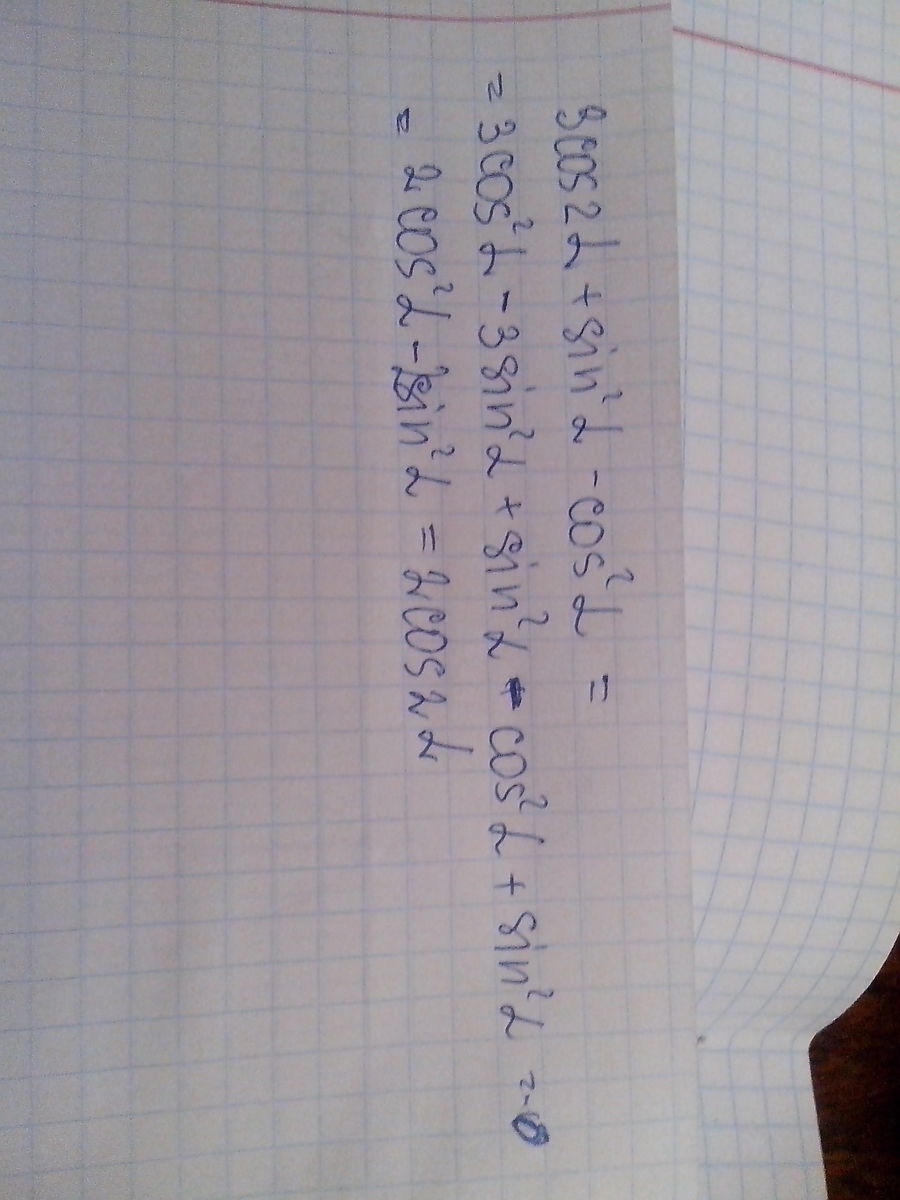 3cos2α + sin²α - cos²α =
= 3cos²α - 3sin²α + sin²α - cos²α + sin²α =
= 2cos²α - 2sin²α = 2cos2α